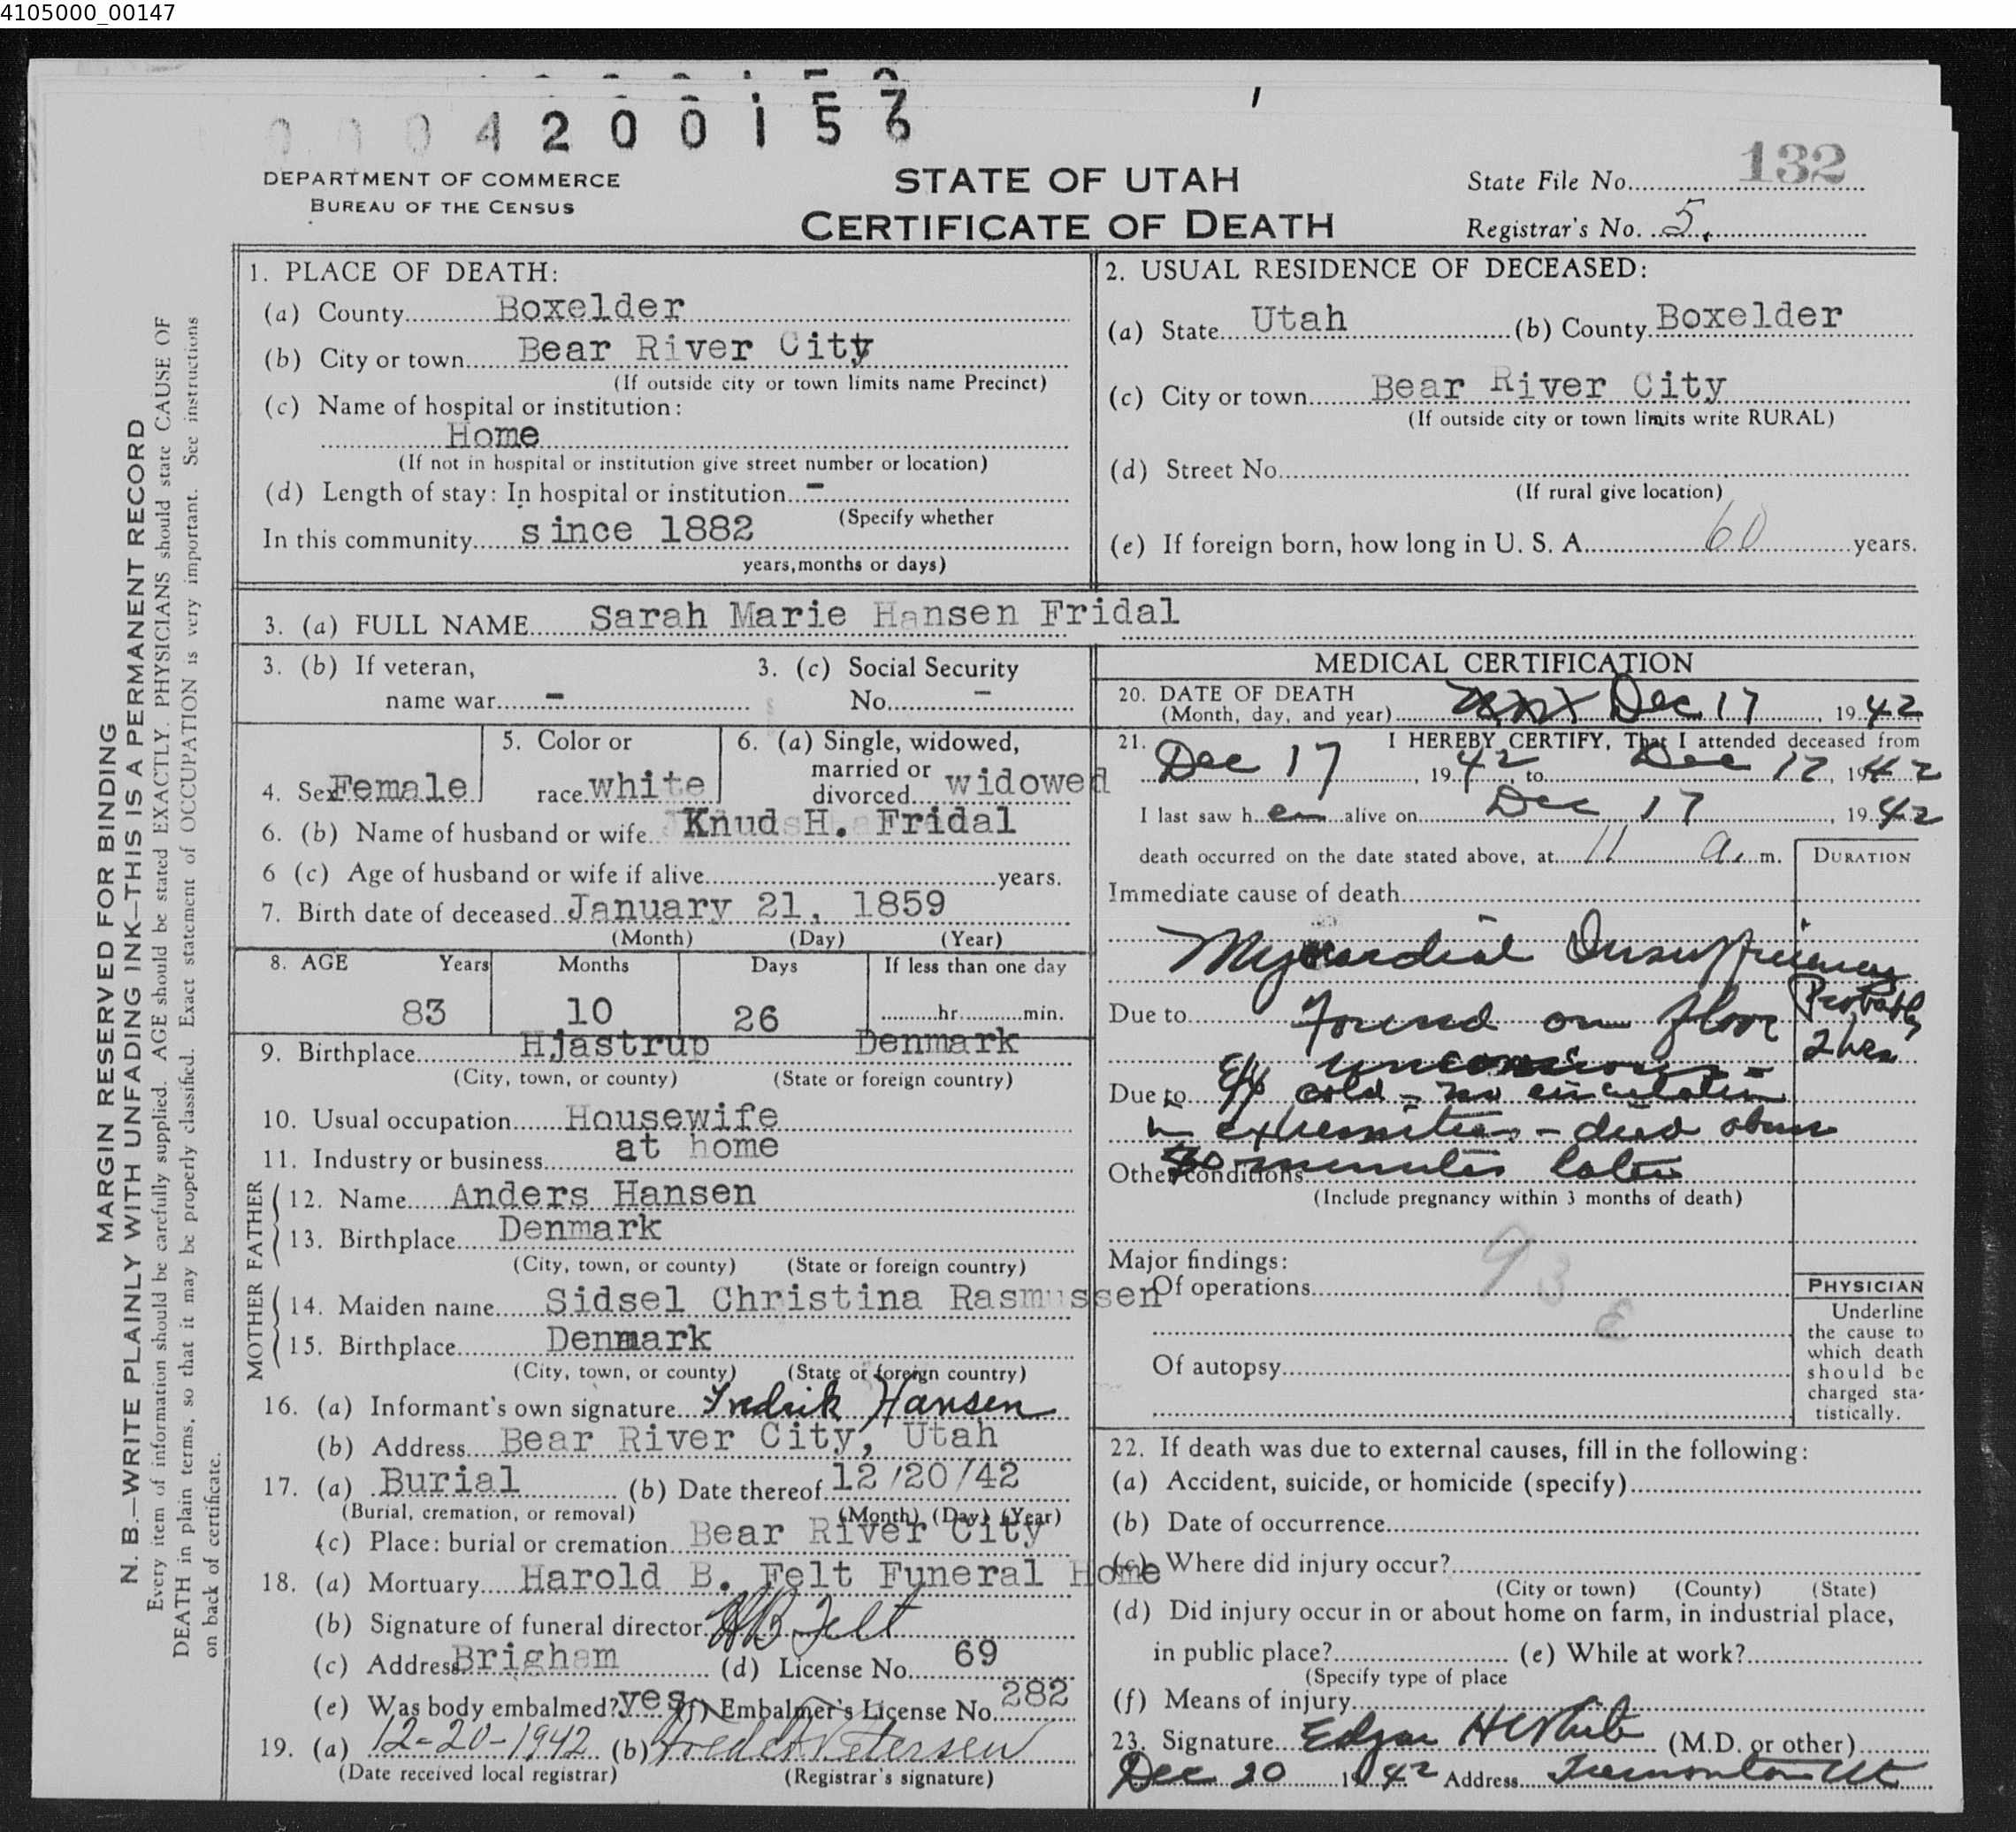 4105000_00147
0004200156
DEPARTMENT OF COMMERCE
BUREAU OF THE CENSUS
STATE OF UTAH
CERTIFICATE OF DEATH
State File No. 132
Registrar's No. 5.
MARGIN RESERVED FOR BINDING
N. B.—WRITE PLAINLY WITH UNFADING INK—THIS IS A PERMANENT RECORD
Every item of information should be carefully supplied. AGE should be stated EXACTLY. PHYSICIANS should state CAUSE OF
DEATH in plain terms, so that it may be properly classified. Exact statement of OCCUPATION is very important. See instructions
on back of certificate.
1. PLACE OF DEATH:
(a) County Boxelder
(b) City or town Bear River City
(If outside city or town limits name Precinct)
(c) Name of hospital or institution:
Home
(If not in hospital or institution give street number or location)
(d) Length of stay: In hospital or institution -
(Specify whether
In this community since 1882
years, months or days)
2. USUAL RESIDENCE OF DECEASED:
(a) State Utah (b) County Boxelder
(c) City or town Bear River City
(If outside city or town limits write RURAL)
(d) Street No.
(If rural give location)
(e) If foreign born, how long in U. S. A. 60 years.
3. (a) FULL NAME Sarah Marie Hansen Fridal
3. (b) If veteran,
name war -
3. (c) Social Security
No. -
4. Sex Female
5. Color or
race white
6. (a) Single, widowed,
married or
divorced widowed
6. (b) Name of husband or wife Knud H. Fridal
6 (c) Age of husband or wife if alive years.
7. Birth date of deceased January 21, 1859
(Month) (Day) (Year)
8. AGE Years Months Days If less than one day
83 10 26 hr. min.
9. Birthplace Hjastrup Denmark
(City, town, or county) (State or foreign country)
10. Usual occupation Housewife
11. Industry or business at home
FATHER
12. Name Anders Hansen
13. Birthplace Denmark
(City, town, or county) (State or foreign country)
MOTHER
14. Maiden name Sidsel Christina Rasmussen
15. Birthplace Denmark
(City, town, or county) (State or foreign country)
16. (a) Informant's own signature Fredrik Hansen
(b) Address Bear River City, Utah
17. (a) Burial (b) Date thereof 12/20/42
(Burial, cremation, or removal) (Month) (Day) (Year)
(c) Place: burial or cremation Bear River City
18. (a) Mortuary Harold B. Felt Funeral Home
(b) Signature of funeral director HB Felt
(c) Address Brigham (d) License No. 69
(e) Was body embalmed? yes (f) Embalmer's License No. 282
19. (a) 12-20-1942 (b) Petersen
(Date received local registrar) (Registrar's signature)
MEDICAL CERTIFICATION
20. DATE OF DEATH
(Month, day, and year) Dec 17, 1942
21. I HEREBY CERTIFY, That I attended deceased from
Dec 17, 1942 to Dec 17, 1942
I last saw her alive on Dec 17, 1942
death occurred on the date stated above, at 11 a. m.
DURATION
Immediate cause of death
Myocardial Insufficiency
Due to Found on floor Probably
unconscious - 2 hrs
Due to cold - no circulation
in extremities - died about
Other conditions 30 minutes later
(Include pregnancy within 3 months of death)
93
Major findings:
Of operations
Of autopsy
PHYSICIAN
Underline
the cause to
which death
should be
charged sta-
tistically.
22. If death was due to external causes, fill in the following:
(a) Accident, suicide, or homicide (specify)
(b) Date of occurrence
(c) Where did injury occur?
(City or town) (County) (State)
(d) Did injury occur in or about home on farm, in industrial place,
in public place? (e) While at work?
(Specify type of place
(f) Means of injury
23. Signature Edgar H White (M.D. or other)
Dec 20 1942 Address Tremonton Ut